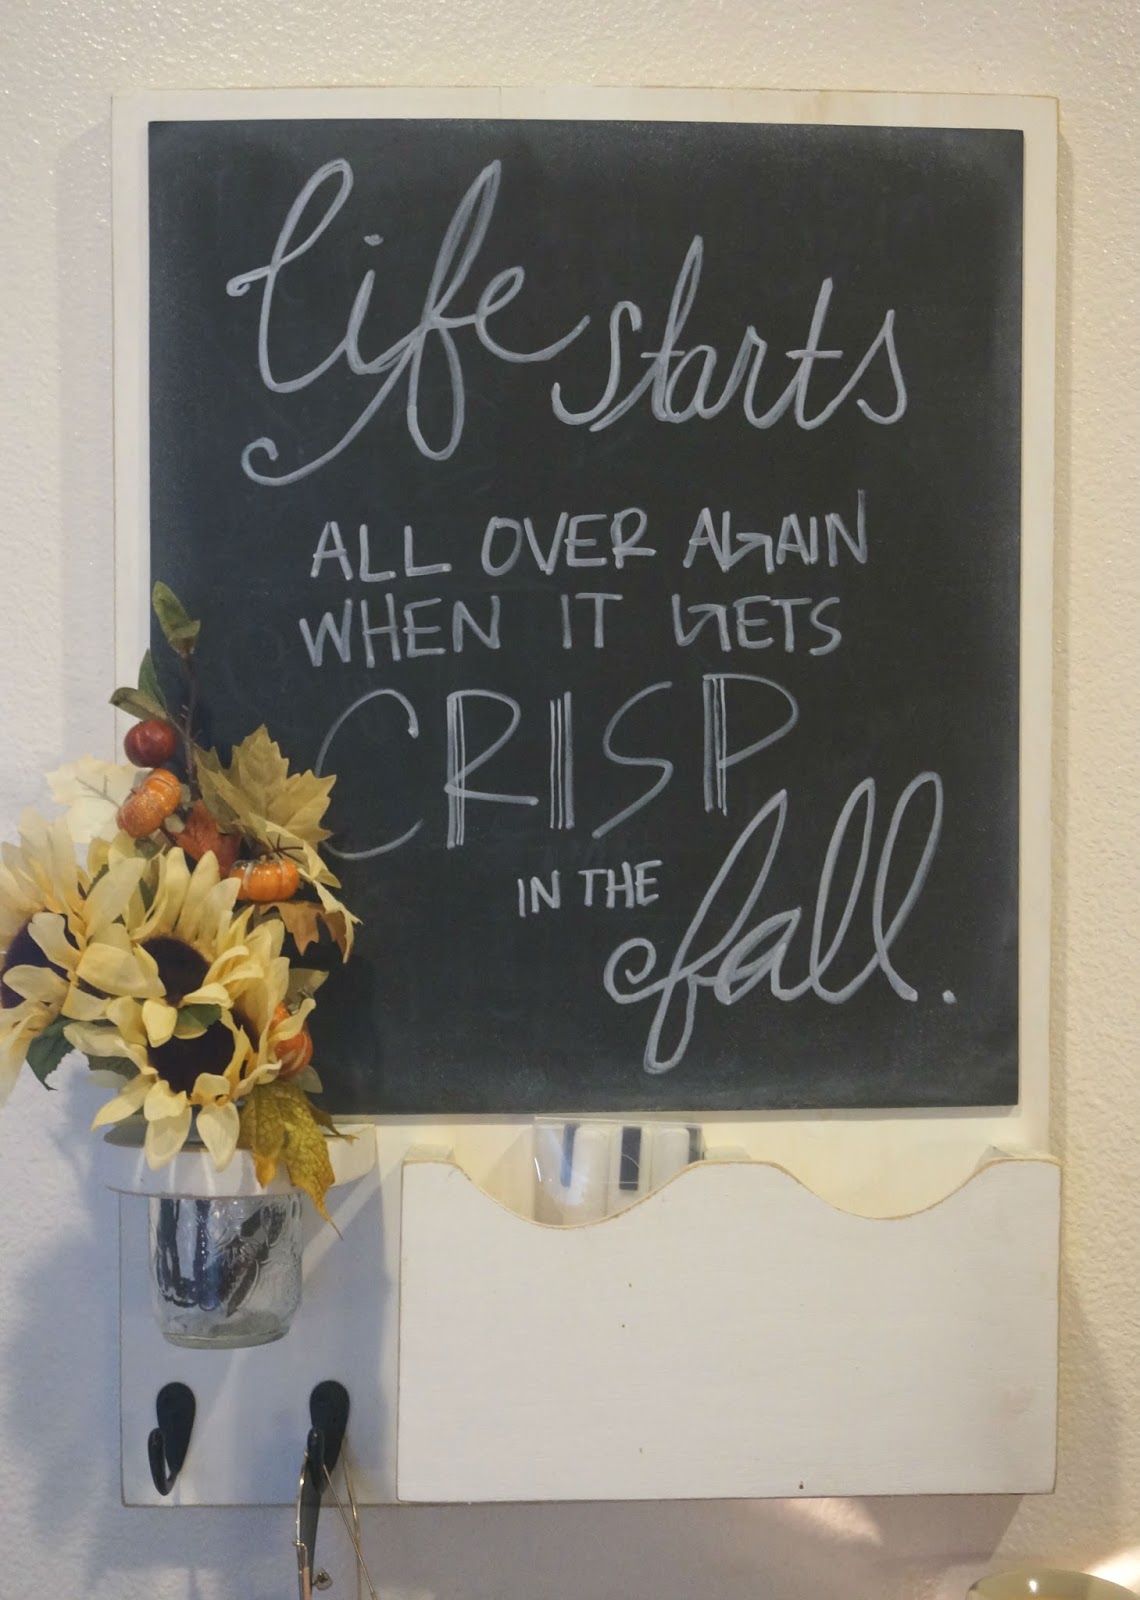 life starts
ALL OVER AGAIN
WHEN IT GETS
CRISP
IN THE fall.